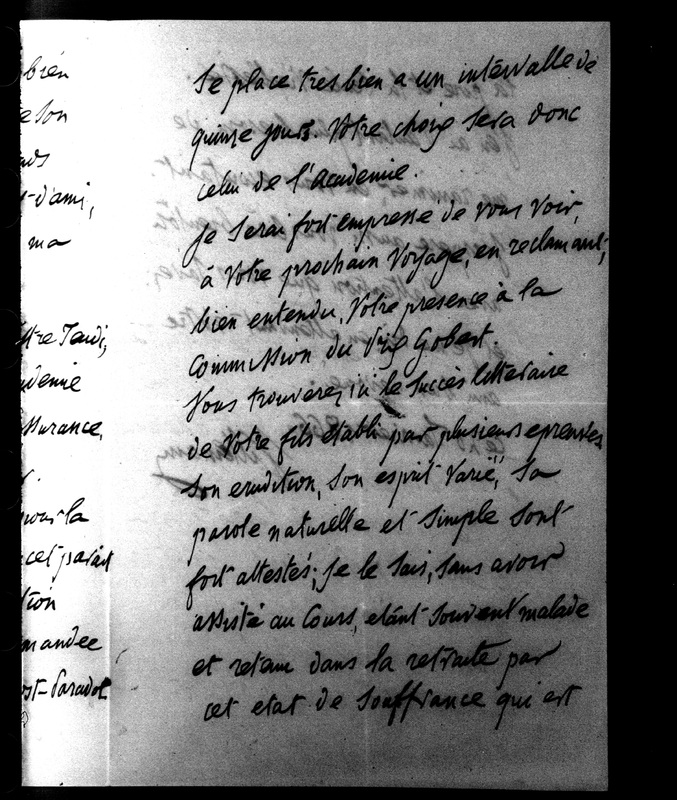 bien
e son
nds
t-d'ami,
ma
ttre Jeudi,
démie
ssurance,
pour la
cet parait
tion
mandée
st-Paradol
Se place tres bien a un intervalle de
quinze jours. Votre choix sera donc
celui de l'Académie.
Je serai fort empressé de vous voir,
à votre prochain voyage, en réclamant,
bien entendu, votre présence à la
Commission du Prix Gobert.
Vous trouverez ici le succès littéraire
de votre fils établi par plusieurs epreuves
Son erudition, son esprit varié, sa
parole naturelle et simple sont
fort attestés; je le sais, sans avoir
assisté au Cours, etant souvent malade
et retenu dans la retraite par
cet etat de souffrance qui est